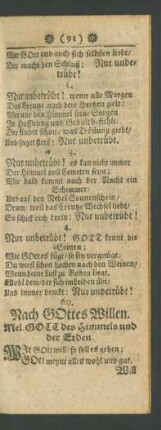 (91)
Wer GOtt und auch sich selbsten liebt/
Der macht den Schluß: Nur unbe-
trübt!
Nur unbetrübt! wenn alle Morgen
Das Creutze nach dem Hertzen zielt:
Der findt Ruhe, was Tröstung giebt/
Und saget stets: Nur unbetrübt.
3.
Nur unbetrübt! es kan nicht immer
Der Himmel voll Cometen seyn:
Wie bald kommt nach der Nacht ein
Schimmer/
Und auf den Nebel Sonnenschein/
Drum/ weil das Creutze Wechsel liebt/
So schick dich drein: Nur unbetrübt!
4.
Nur unbetrübt! GOTT kennt die
Seinen:
Wie GOtt es fügt/ so sey vergnügt.
Du wirst schon lachen nach den Weinen/
Wenn deine Last zu Boden liegt,
Wohl dem/ der sich im Leiden übt/
Und immer denckt: Nur unbetrübt!
60.
Nach GOttes Willen.
Mel. GOTT des Himmels und
der Erden.
WIe GOtt will/ so soll es gehen;
GOtt meynt alles wohl und gut.
Will